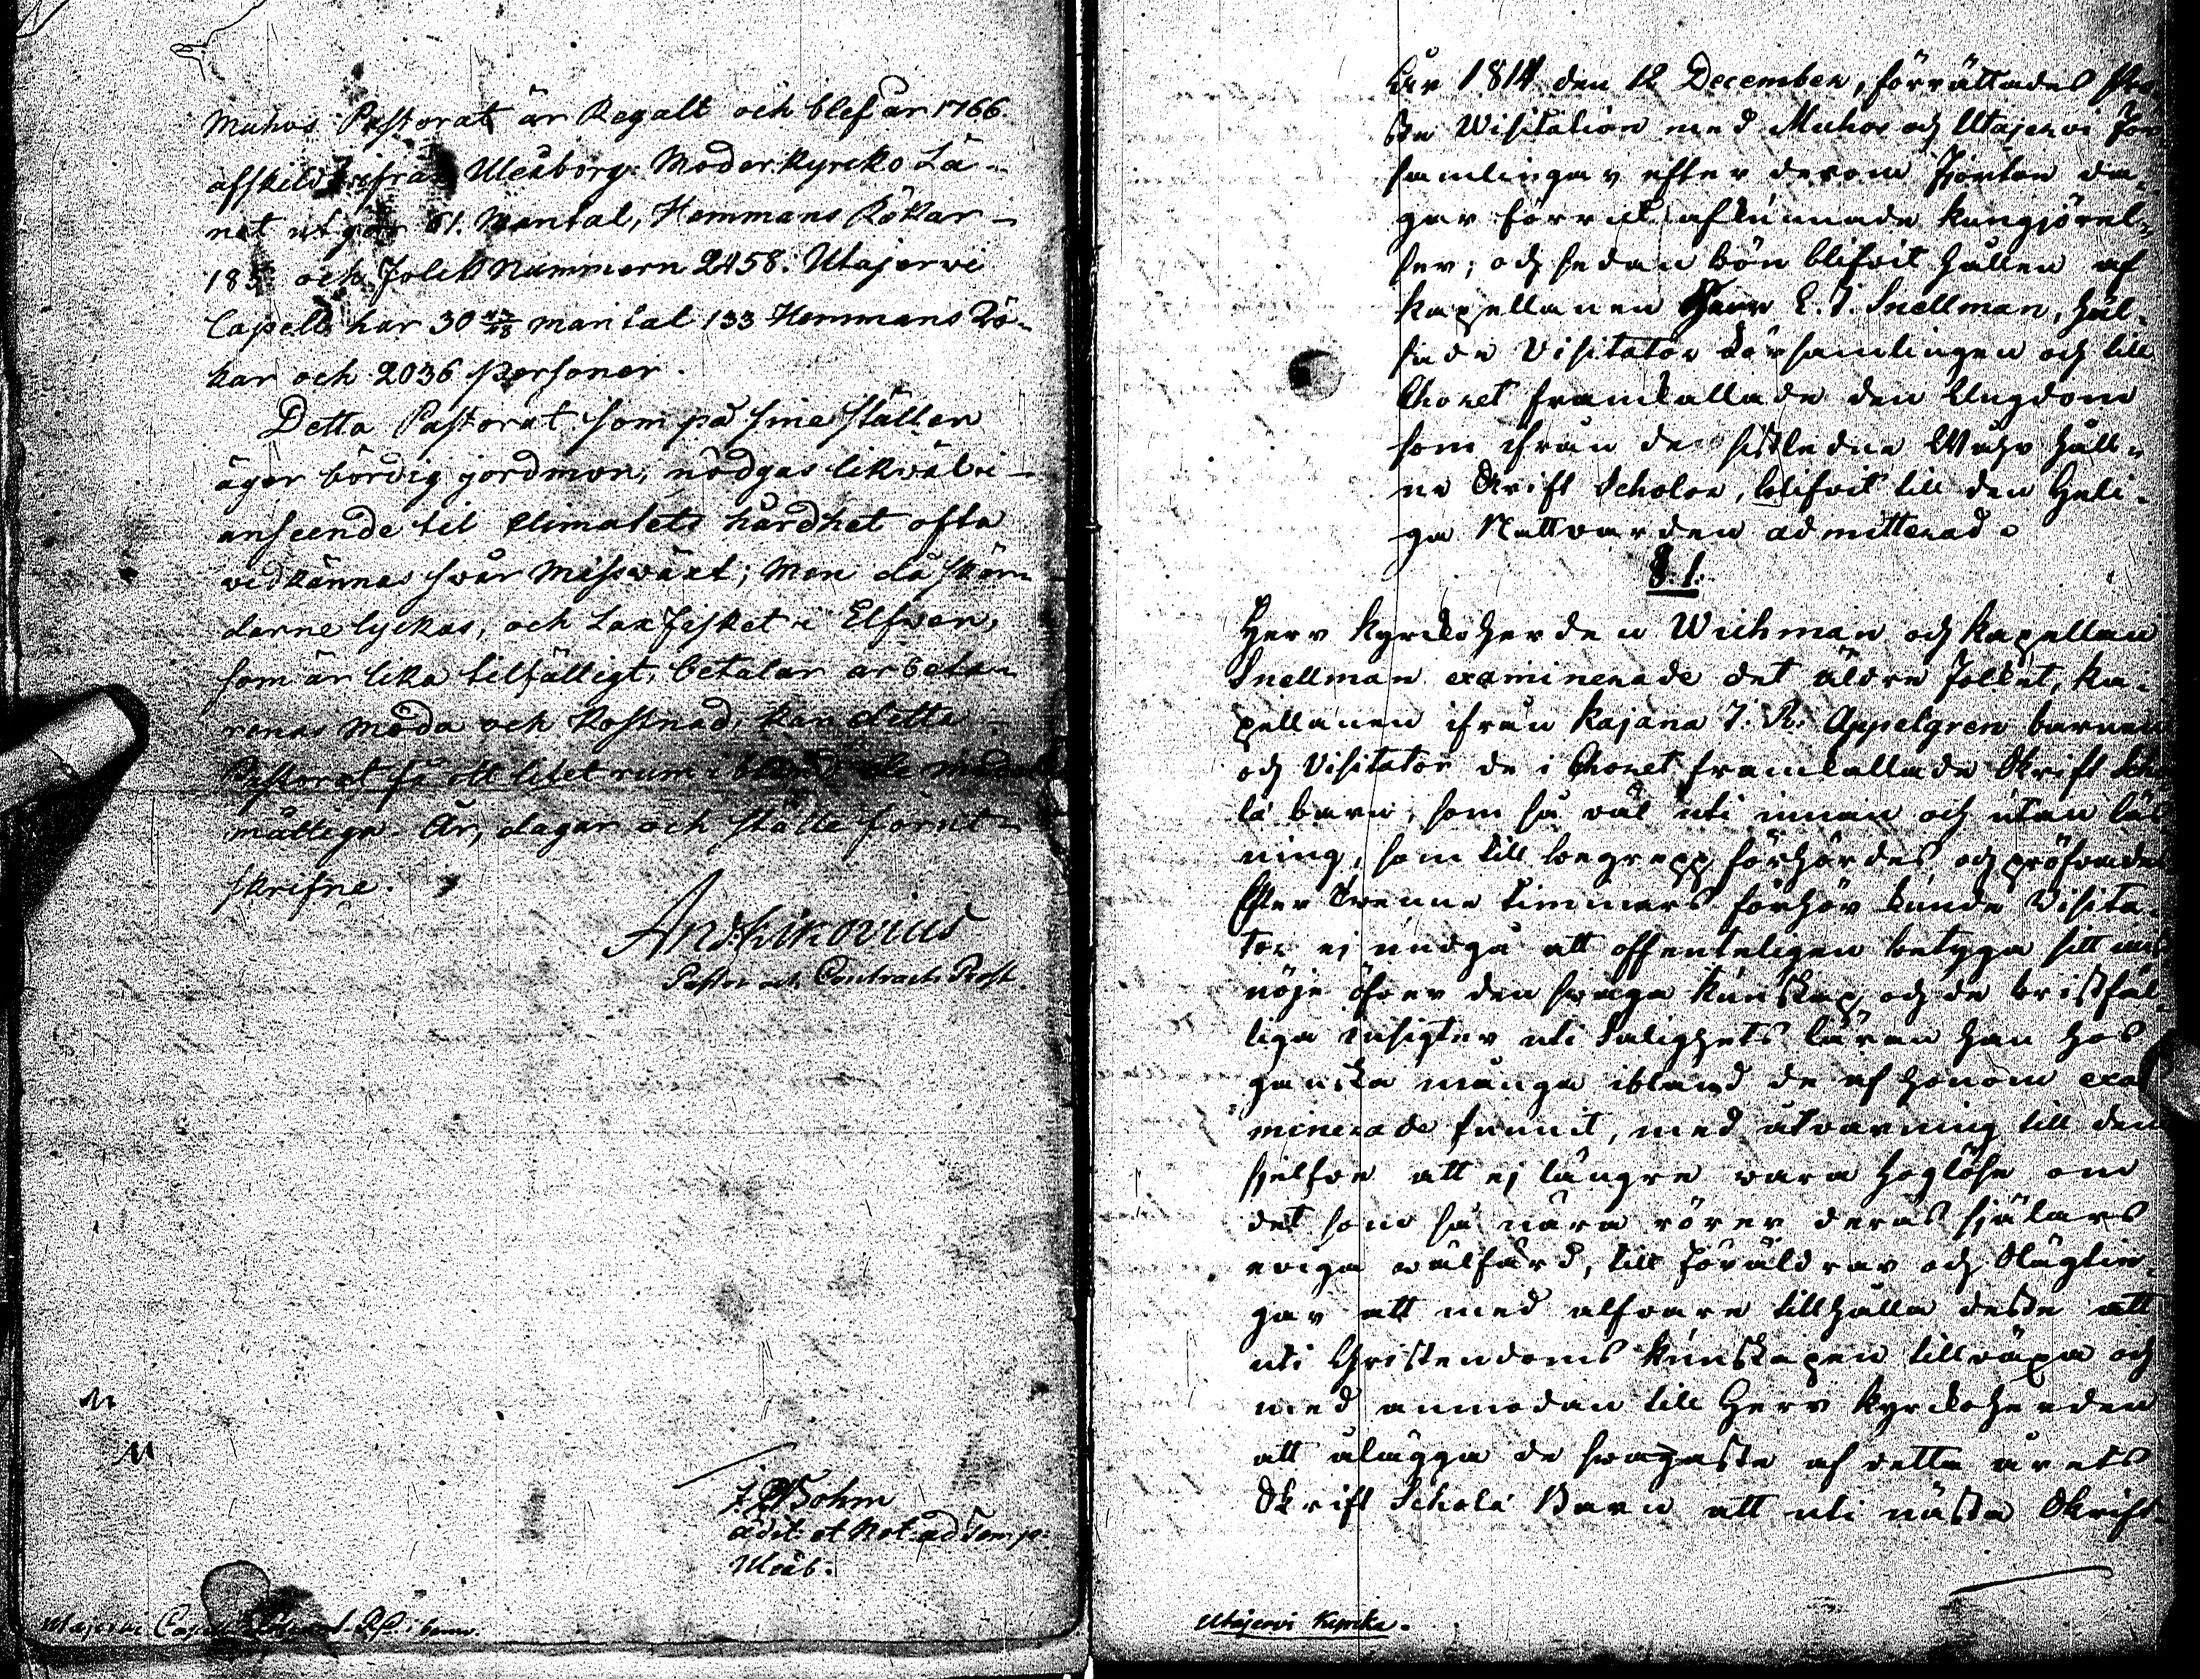 Muhos Pastorat är Regalt och blef år 1766.
afskild ifrån Uleåborgs Moderkyrcko Lä-
net utgör 61. Mantal, Hemmans Rökar
185 och Folck Nummern 2458. Utajervi
Capell har 30 mantal 133 Hemmans Rö-
kar och 2036 personer.
Detta Pastorat som på sine ställen
äger bördig jordmon, nödgas likwäl i
anseende til Climatets hårdhet ofta
vidkännas svår Missväxt; Men då skör-
darne lyckas, och Lax Fisket i Elfven,
som är lika tilfälligt, betalar arbeta-
renas möda och kostnad, kan detta
Pastorat få ett litet rum ibland de medel
måttiga. År, dagar och ställe förut-
skrifne.
And. Kikovius
Pastor och Contracts Prost.
Bohm
adit. et Not. ad Temp.
Uleåb.
Utajervi Capell
År 1814 den 12 December, förrättades
Visitation med Muhos och Utajervi För
samlingar efter derom fjorton da-
gar förrut afkunnade kungjörel-
ser; och sedan bön blifvit hållen af
Kapellanen Herr E. J. Snellman, häl-
sade Visitator Församlingen och till
Choret framkallade den Ungdom
som ifrån de sistledne håll-
ne Skrift Scholor, blifvit till den Heli-
ga Nattvarden admitterad.
§. 1.
Herr Kyrkoherden Wichman och Kapellan
Snellman examinerade det äldre Folket, Ka-
pellanen ifrån Kajana J. R. Appelgren barnen
och Visitator de i Choret framkallade Skrift Scho
lä barn, som så väl uti innan och utan läs
ning, som till begrepp förhördes och pröfvades
Efter Twenne timmars förhör kunde Visita-
tor ej undgå att offenteligen betyga sitt miss
nöje öfver den svaga kunskap och de bristfäl-
liga insigter uti Salighets läran han hos
ganska många ibland de af honom exa
minerade funnit, med åtvarning till dem
sjelfve att ej längre vara håglöse om
det som så nära rörer deras själars
eviga välfärd, till Föräldrar och Slägtin-
gar att med alfvare tillhålla desse att
uti Christendoms kunskapen tillväxa och
med anmodan till Herr Kyrkoherden
att ålägga de svagaste af detta årets
Skrift Scholä Barn att uti nästa Skrift-
Utajervi Kyrcka.